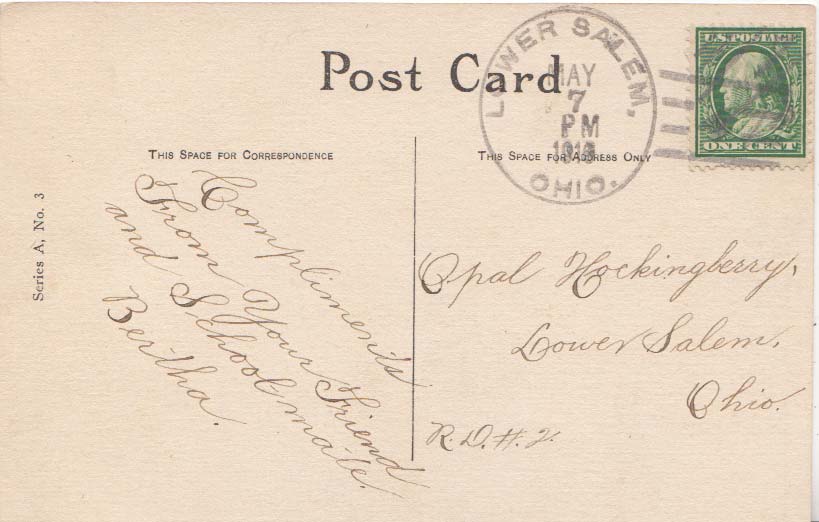 Post Card
LOWER SALEM,
OHIO.
MAY
7
PM
U.S. POSTAGE
ONE CENT
THIS SPACE FOR CORRESPONDENCE
THIS SPACE FOR ADDRESS ONLY
Series A, No. 3
Compliments
From Your Friend
and School mate.
Bertha.
Opal Hockingberry,
Lower Salem,
Ohio.
R.D.#2.